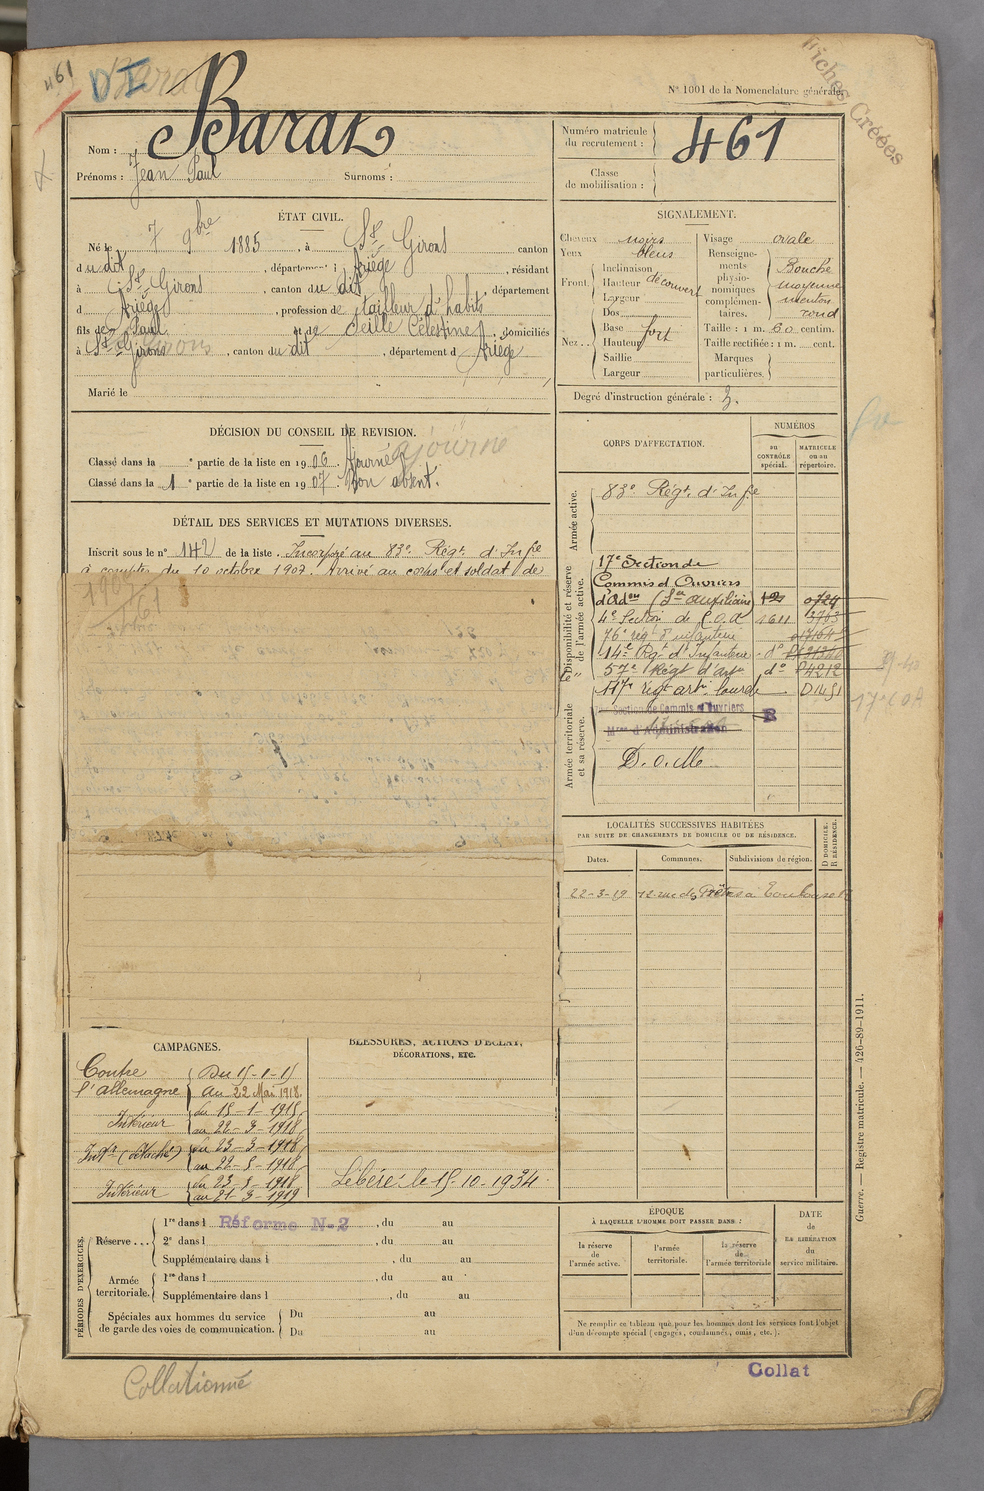 461
D I
Barat
N° 1001 de la Nomenclature générale.
Fiches Créées
Nom : Barat
Prénoms : Jean Paul Surnoms :
Numéro matricule du recrutement : 461
Classe de mobilisation :
ÉTAT CIVIL.
Né le 7 9bre 1885, à St Girons canton
du dit, département Ariège, résidant
à St Girons, canton du dit, département
d Ariège, profession de tailleur d'habits
fils de Paul et de Seille Célestine, domiciliés
à St Girons, canton du dit, département d Ariège
Marié le
SIGNALEMENT.
Cheveux noirs
Yeux bleus
Front. Inclinaison
Hauteur découvert
Largeur
Nez... Dos
Base fort
Hauteur
Saillie
Largeur
Visage ovale
Renseignements physionomiques complémentaires. Bouche moyenne menton rond
Taille : 1 m. 60 centim.
Taille rectifiée : 1 m. cent.
Marques particulières.
Degré d'instruction générale : 3.
DÉCISION DU CONSEIL DE REVISION.
Classé dans la ° partie de la liste en 1906. Ajourné ajourné
Classé dans la 1 ° partie de la liste en 1907. Bon absent.
DÉTAIL DES SERVICES ET MUTATIONS DIVERSES.
Inscrit sous le n° 142 de la liste. Incorporé au 83e Régt d'Infie
à compter du 10 octobre 1907. Arrivé au corps et soldat de
1907
461
CORPS D'AFFECTATION.
NUMÉROS
au CONTRÔLE spécial.
MATRICULE ou au répertoire.
Armée active.
83e Régt d'Infie
Disponibilité et réserve de l'armée active.
17e Section de
Commis et Ouvriers
d'Adon (Sce auxiliaire) 0727
4e Section de C.O.A 1611 3763
76e rég d'infanterie
14e Régt d'Infanterie do
57e Régt d'Arti do 4212
117e régt arti lourde D1451
17e C O A
Armée territoriale et sa réserve.
Section de Commis et Ouvriers
Mres d'Administration
R
D. o. M.
LOCALITÉS SUCCESSIVES HABITÉES
PAR SUITE DE CHANGEMENTS DE DOMICILE OU DE RÉSIDENCE.
Dates.
Communes.
Subdivisions de région.
D DOMICILE. R RÉSIDENCE.
22-3-19 12 rue des Prêtres à Toulouse R
CAMPAGNES.
Contre l'allemagne Du 15-1-15
au 22 Mai 1918.
Intérieur du 15-1-1915
au 22-3-1918
Intr (détaché) du 23-3-1918
au 22-5-1918
Intérieur du 23-5-1918
au 21-3-1919
BLESSURES, ACTIONS D'ÉCLAT,
DÉCORATIONS, ETC.
Libéré le 15-10-1934.
PÉRIODES D'EXERCICES.
Réserve... 1re dans l Réforme N-2, du au
2e dans l, du au
Supplémentaire dans l, du au
Armée territoriale. 1re dans l, du au
Supplémentaire dans l, du au
Spéciales aux hommes du service de garde des voies de communication. Du au
Du au
ÉPOQUE
À LAQUELLE L'HOMME DOIT PASSER DANS :
la réserve de l'armée active.
l'armée territoriale.
la réserve de l'armée territoriale
DATE de LA LIBÉRATION du service militaire.
Ne remplir ce tableau que pour les hommes dont les services font l'objet
d'un décompte spécial (engagés, condamnés, omis, etc.).
Guerre. — Registre matricule. — 426-89-1911.
Collationné
Collat